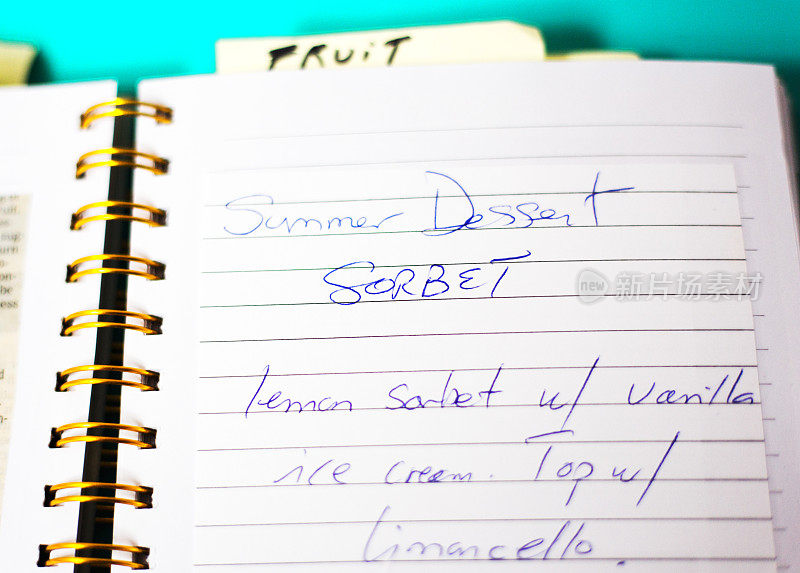 FRUIT
Summer Dessert
SORBET
lemon sorbet w/ vanilla
ice cream. Top w/
limoncello.
new 新片场素材